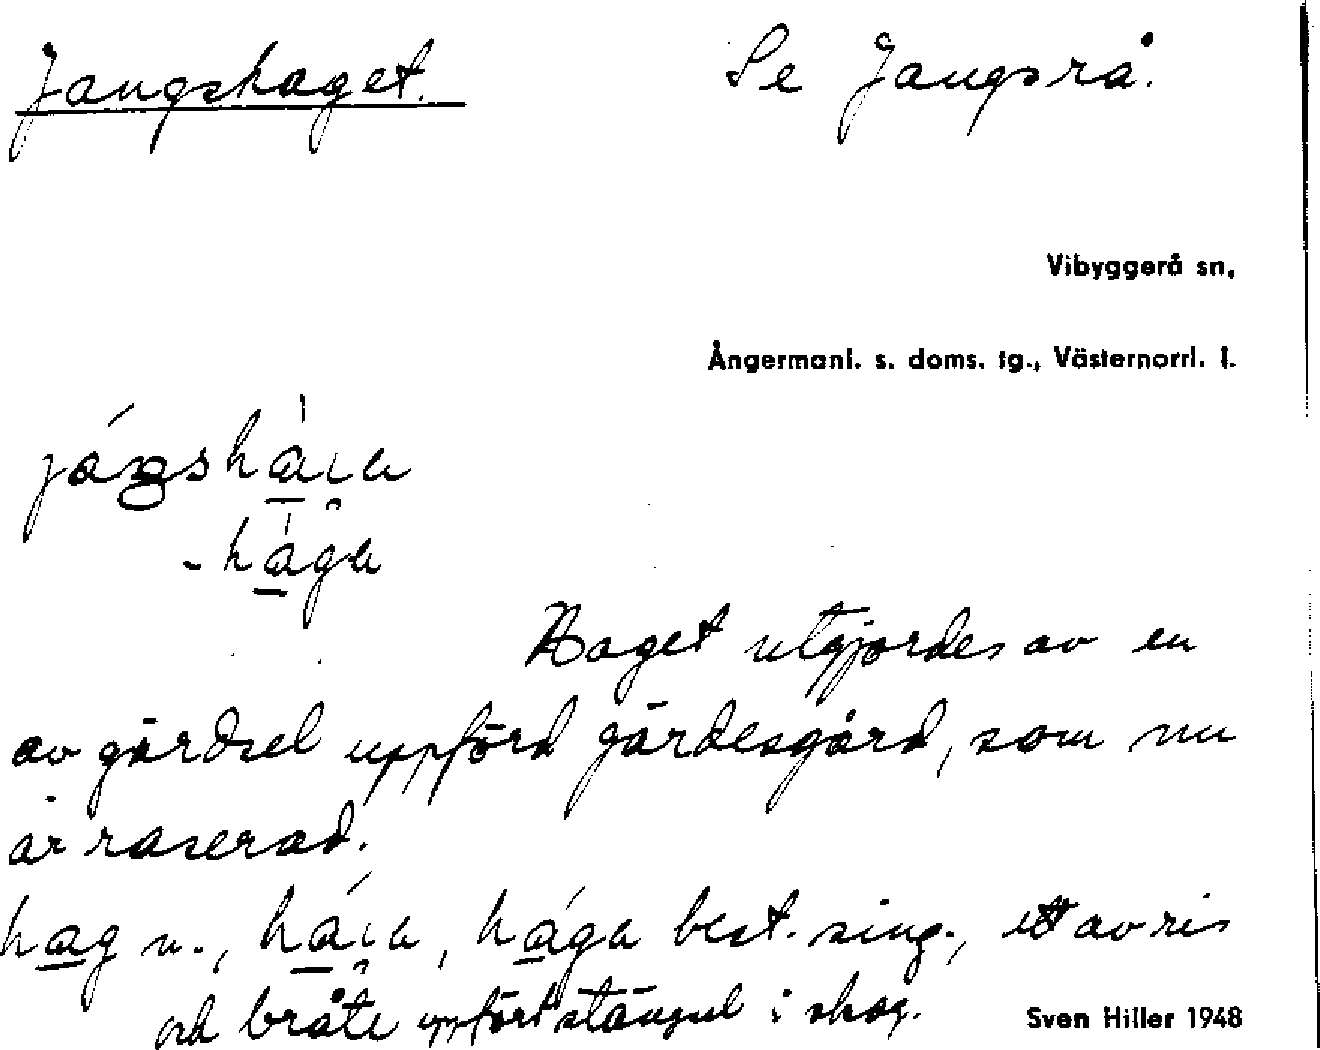 Jangshaget. Se Jangsrå.
Vibyggerå sn,
Ångermanl. s. doms. tg., Västernorrl. l.
-hága
Haget utgjordes av en
av gärdsel uppförd gärdesgård, som nu
är raserad.
hag n., hága best. sing., ett av ris
och bråte uppfört stängsel i skog.
Sven Hiller 1948